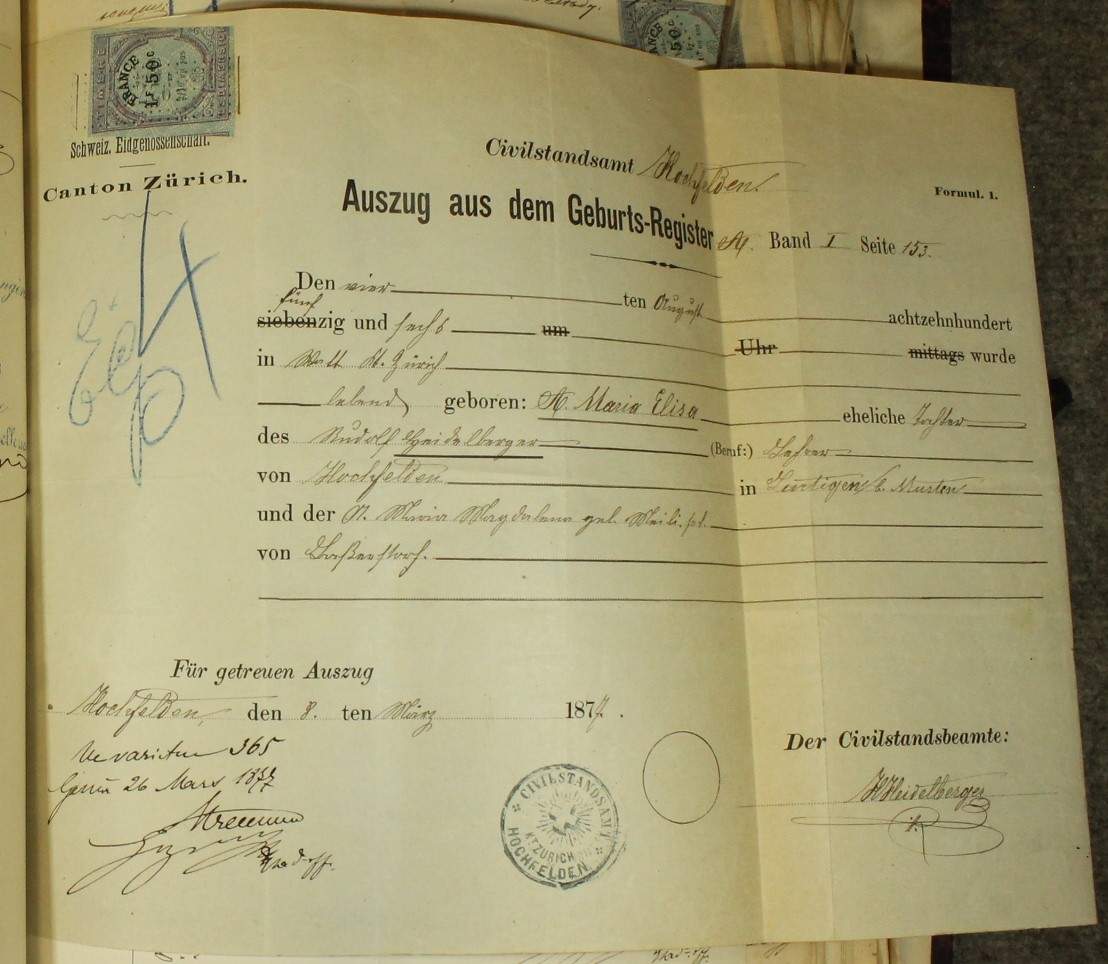 FRANCE
1 F 50 C
Schweiz. Eidgenossenschaft.
Canton Zürich.
Civilstandsamt Hochfelden
Formul. 1.
Auszug aus dem Geburts-Register A. Band I Seite 153.
Den vier ten August achtzehnhundert
fünf
siebenzig und sechs um Uhr mittags wurde
in Watt Kt. Zürich
lebend geboren: A. Maria Elisa eheliche Tochter
des Rudolf Heidelberger (Beruf:) Lehrer
von Hochfelden in Lurtigen b. Murten
und der A. Maria Magdalena geb. Meili
von Baßerstorf.
Für getreuen Auszug
Hochfelden, den 8. ten März 1877.
Ne varietur 365
26 Mars 1877
Der Civilstandsbeamte:
HHeidelberger
CIVILSTANDSAMT
KT ZÜRICH
HOCHFELDEN